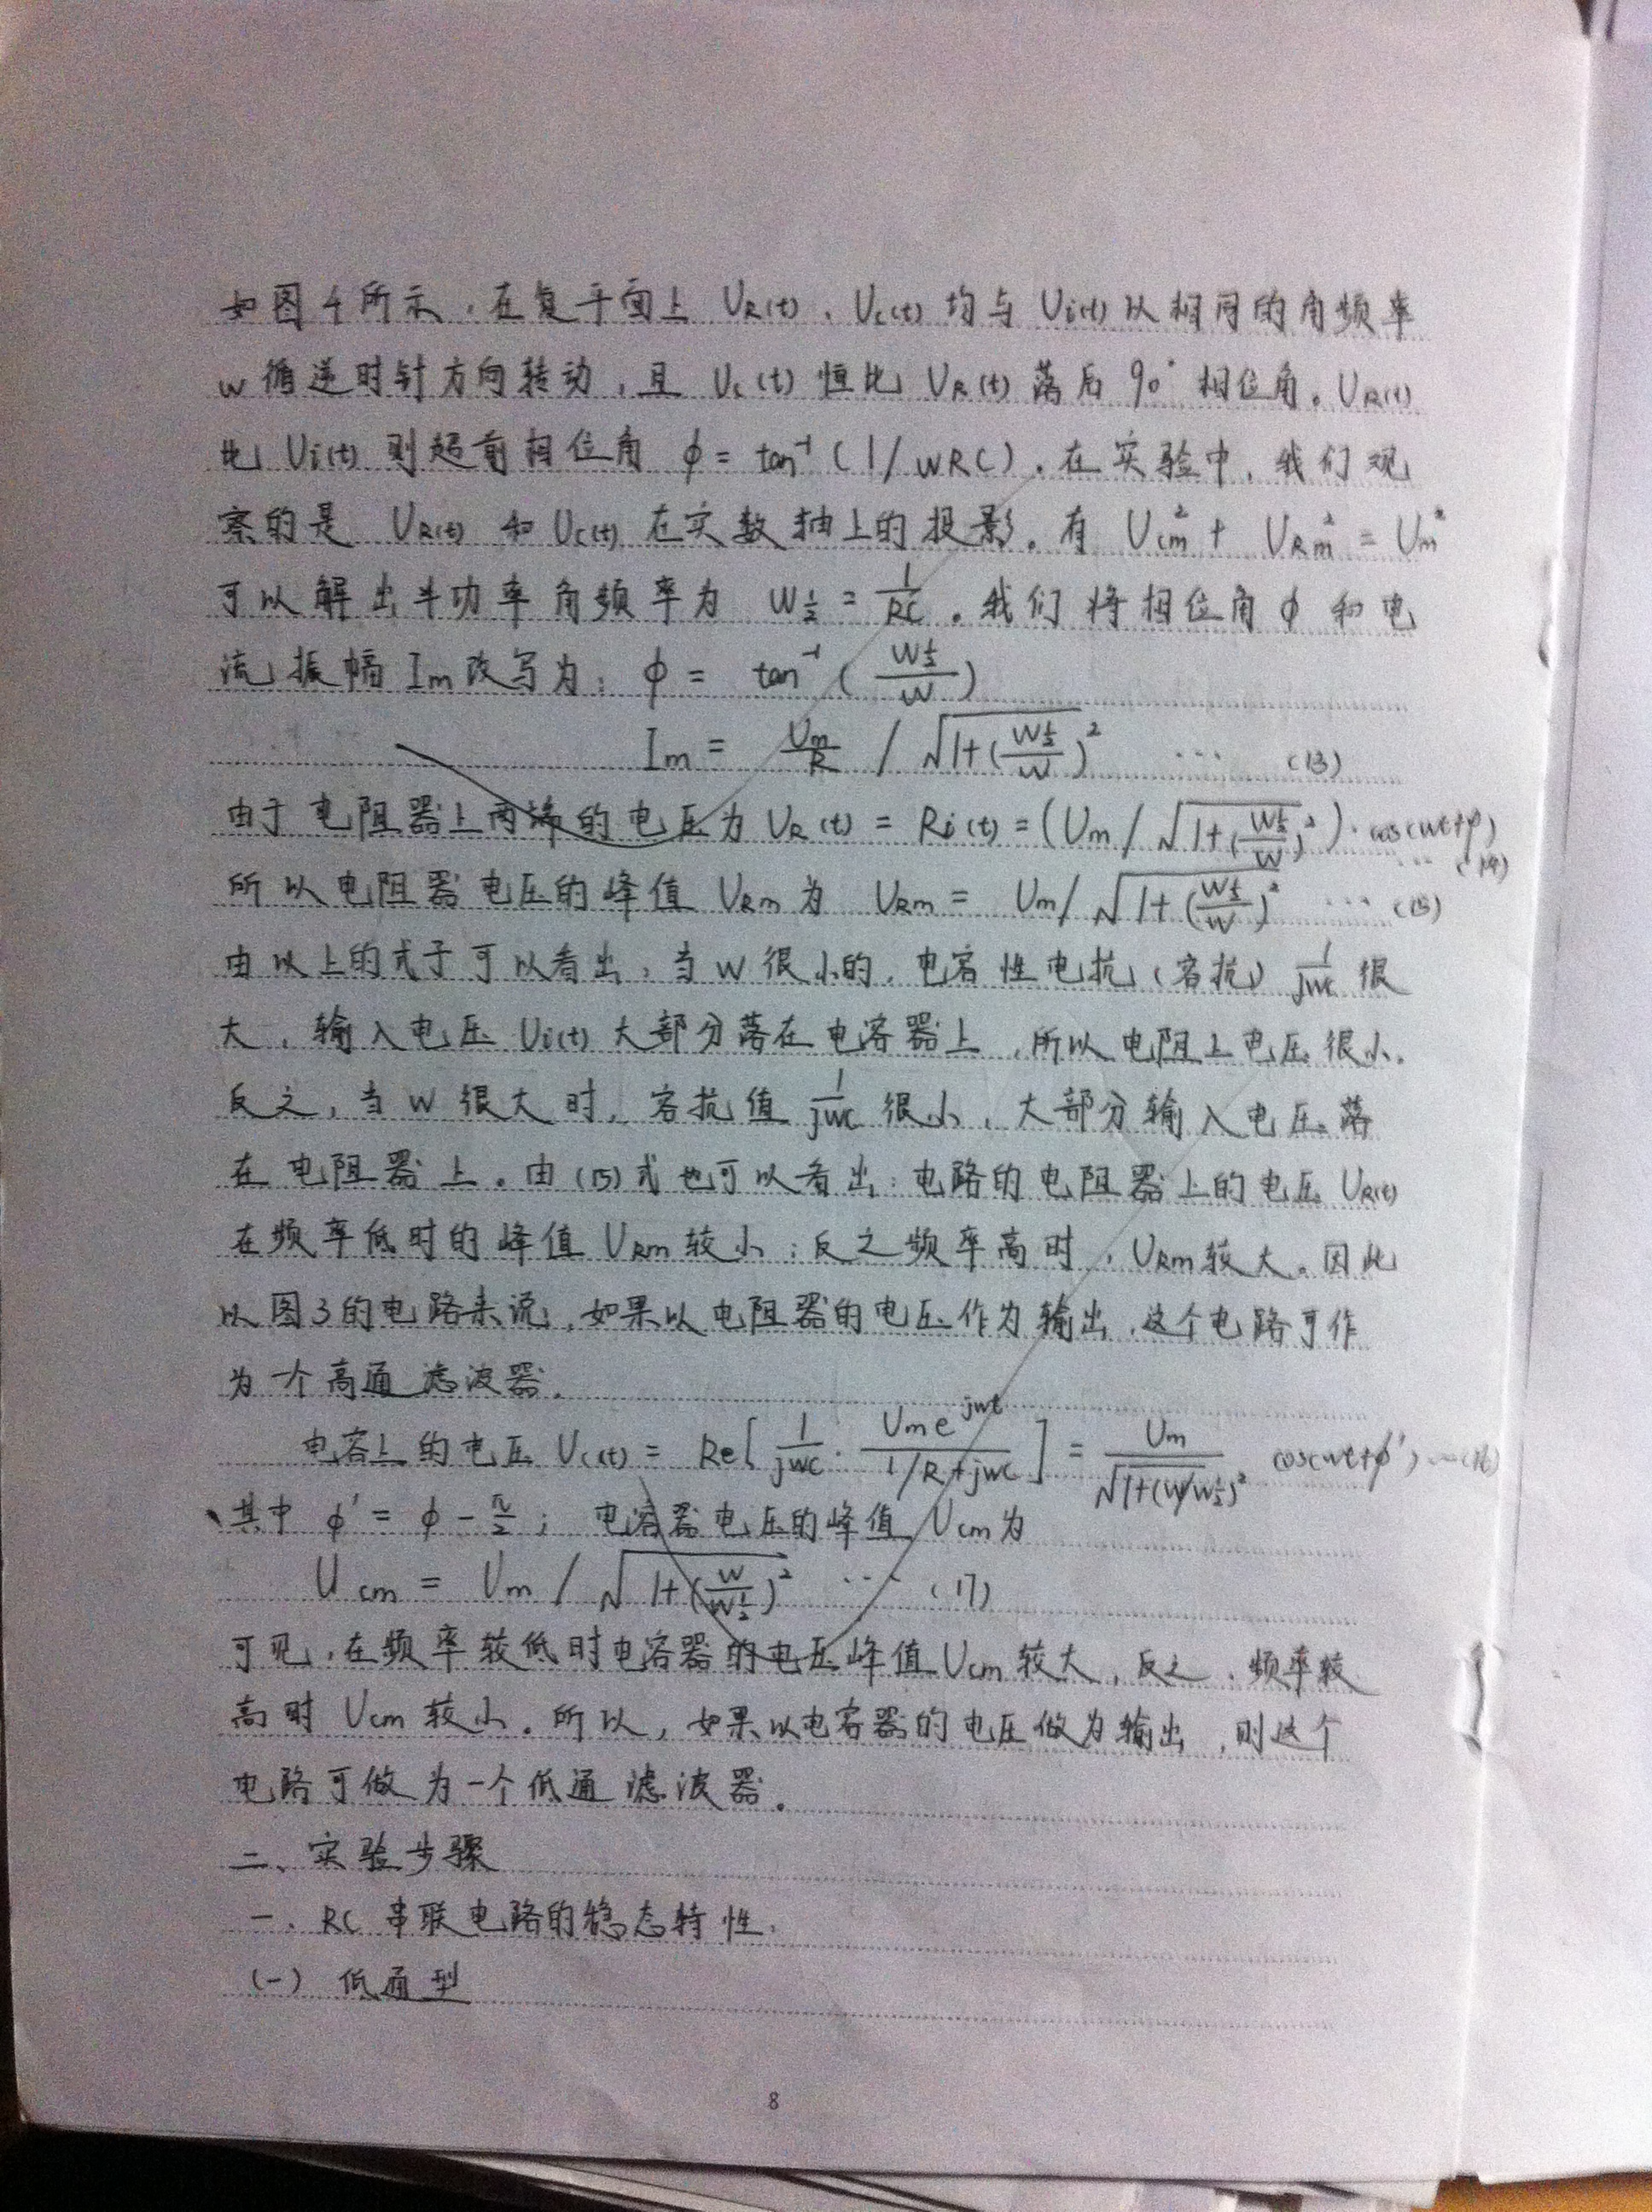 如图4所示，在复平面上 UR(t)、Uc(t) 均与 Ui(t) 以相同的角频率
w 循逆时针方向转动，且 Uc(t) 恒比 UR(t) 落后 90° 相位角。UR(t)
比 Ui(t) 则超前相位角 φ = tan⁻¹ (1/wRC)。在实验中，我们观
察的是 UR(t) 和 Uc(t) 在实数轴上的投影。有 Ucm² + URm² = Um²
可以解出半功率角频率为 W½ = 1/RC。我们将相位角 φ 和电
流振幅 Im 改写为：φ = tan⁻¹ (W½/W)
Im = Um/R / √1+(W½/W)² … (13)
由于电阻器上两端的电压为 UR(t) = Ri(t) = (Um/√1+(W½/W)²)·cos(wt+φ)
… (14)
所以电阻器电压的峰值 URm 为 URm = Um/√1+(W½/W)² … (15)
由以上的式子可以看出，当 W 很小的，电容性电抗（容抗）1/jwc 很
大，输入电压 Ui(t) 大部分落在电容器上，所以电阻上电压很小。
反之，当 W 很大时，容抗值 1/jwc 很小，大部分输入电压落
在电阻器上。由 (15) 式也可以看出：电路的电阻器上的电压 UR(t)
在频率低时的峰值 URm 较小；反之频率高时，URm 较大。因此
以图3的电路来说，如果以电阻器的电压作为输出，这个电路可作
为一个高通滤波器。
电容上的电压 Uc(t) = Re[1/jwc · Ume^jwt/(1/R+jwc)] = Um/√1+(W/W½)² cos(wt+φ′) … (16)
其中 φ′ = φ - π/2；电容器电压的峰值 Ucm 为
Ucm = Um/√1+(W/W½)² … (17)
可见，在频率较低时电容器的电压峰值 Ucm 较大，反之，频率较
高时 Ucm 较小。所以，如果以电容器的电压做为输出，则这个
电路可做为一个低通滤波器。
二、实验步骤
一、RC 串联电路的稳态特性。
(一) 低通型
8